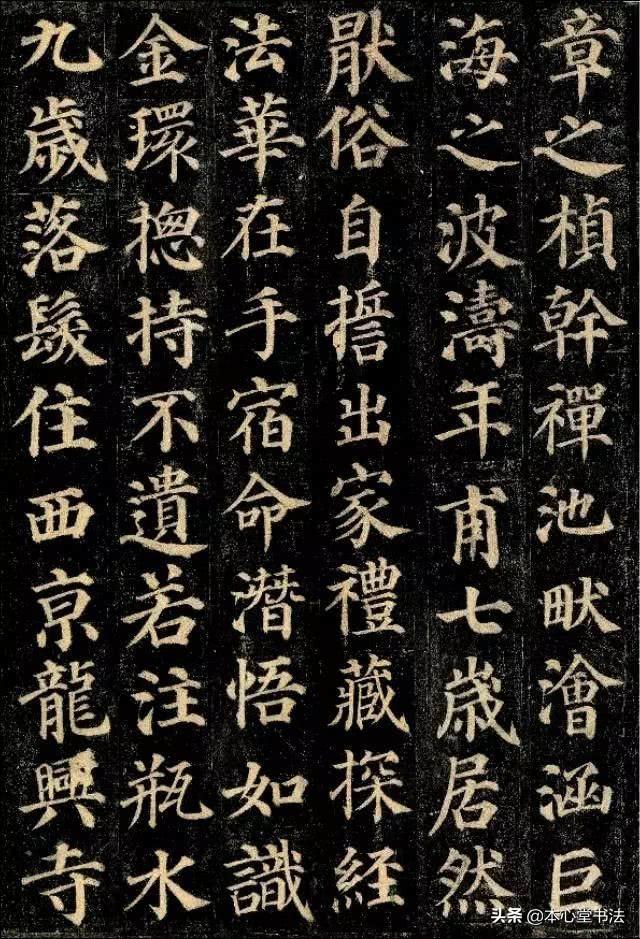 章之楨幹禪池畎澮涵巨
海之波濤年甫七歲居然
猒俗自擔出家禮藏探經
法華在手宿命潛悟如識
金環揔持不遺若注瓶水
九歲落髮住西京龍興寺
头条 @本心堂书法